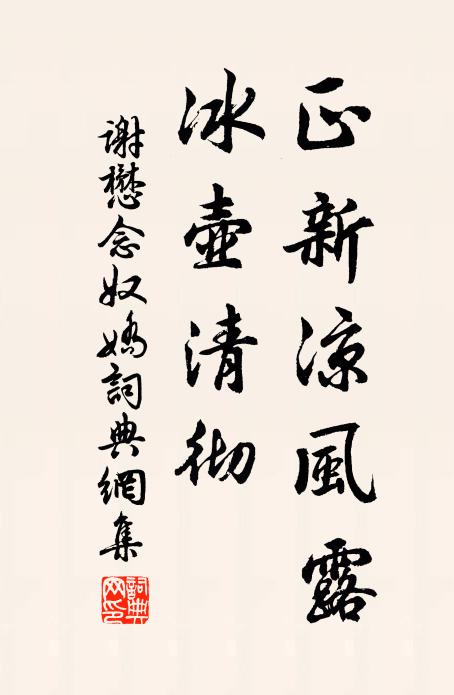 正新凉風露
冰壺清彻
谢懋念奴嬌詞典網集
詞典网印